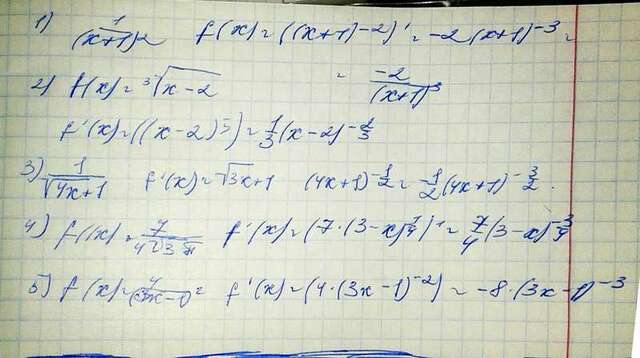 1) 1/(x+1)2 f(x)=((x+1)-2)'=-2(x+1)^-3=
= -2/(x+1)^3
2) f(x)=³√x-2
f'(x)=((x-2)^(5))=1/3(x-2)^-2/3
3) 1/√4x+1 f'(x)=√3x+1 (4x+1)^-1/2=-1/2(4x+1)^-3/2.
4) f(x)= 7/4√3-x f'(x)=(7·(3-x)^1/4)'=7/4(3-x)^-3/4
5) f(x)=4/(3x-1)^2 f'(x)=(4·(3x-1)^-2)=-8·(3x-1)^-3